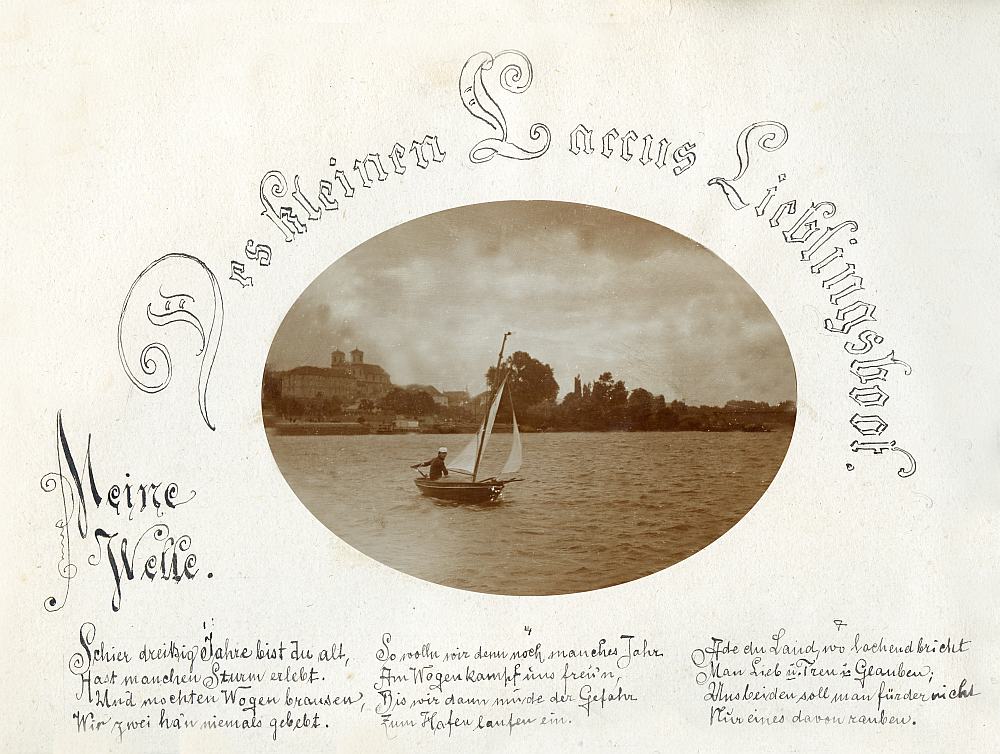 Des kleinen Laccus Lieblingsboot.
Meine
Welle.
Schier dreißig Jahre bist du alt,
Hast manchen Sturm erlebt.
Und mochten Wogen brausen,
Wir zwei ha'n niemals gebebt.
So wolln wir denn noch manches Jahr
Am Wogenkampf uns freu'n,
Bis wir dann müde der Gefahr
Zum Hafen laufen ein.
Ade du Land, wo lachend bricht
Man Lieb u. Treu u. Glauben;
Uns beiden soll man fürder nicht
Nur eines davon rauben.